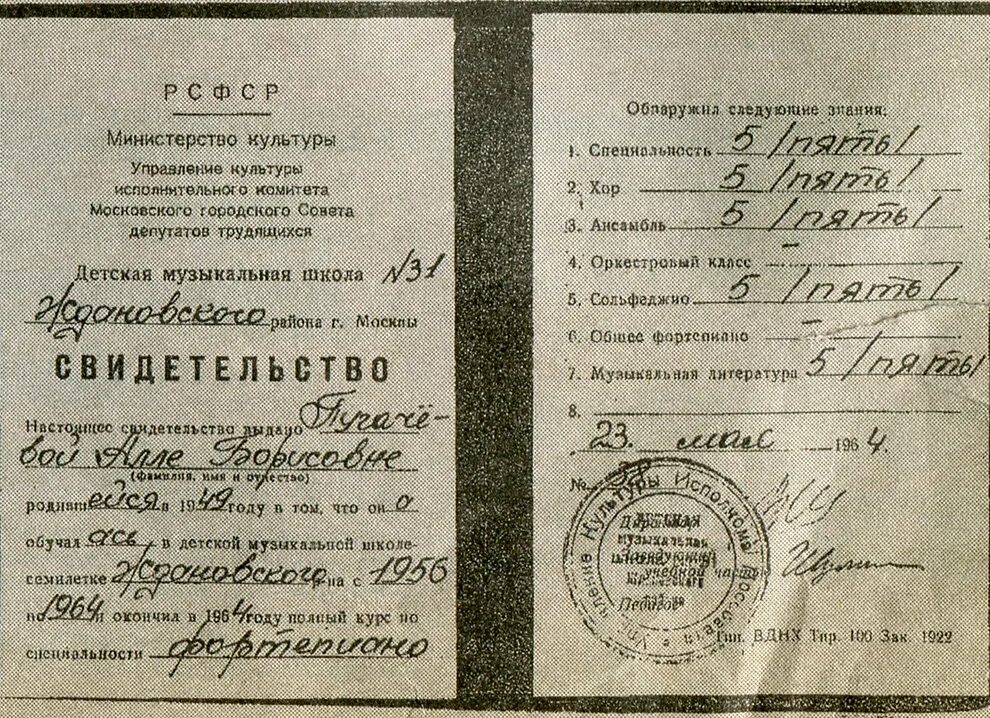 РСФСР
Министерство культуры
Управление культуры
исполнительного комитета
Московского городского Совета
депутатов трудящихся
Детская музыкальная школа №31
Ждановского района г. Москвы
СВИДЕТЕЛЬСТВО
Настоящее свидетельство выдано Пугачё-
вой Алле Борисовне
(фамилия, имя и отчество)
родившейся в 1949 году в том, что он а
обучалась, в детской музыкальной школе-
семилетке Ждановского на с 1956
по 1964 и окончил в 1964 году полный курс по
специальности фортепиано
Обнаружил следующие знания:
1. Специальность 5 /пять/
2. Хор 5 /пять/
3. Ансамбль 5 /пять/
4. Оркестровый класс –
5. Сольфеджио 5 /пять/
6. Общее фортепиано –
7. Музыкальная литература 5 /пять/
8.
23. мая 1964.
№
Культуры Исполкома
Директор
музыкальная
Заведующий
учебной частью
Педагог
Тип. ВДНХ Тир. 100 Зак. 1922